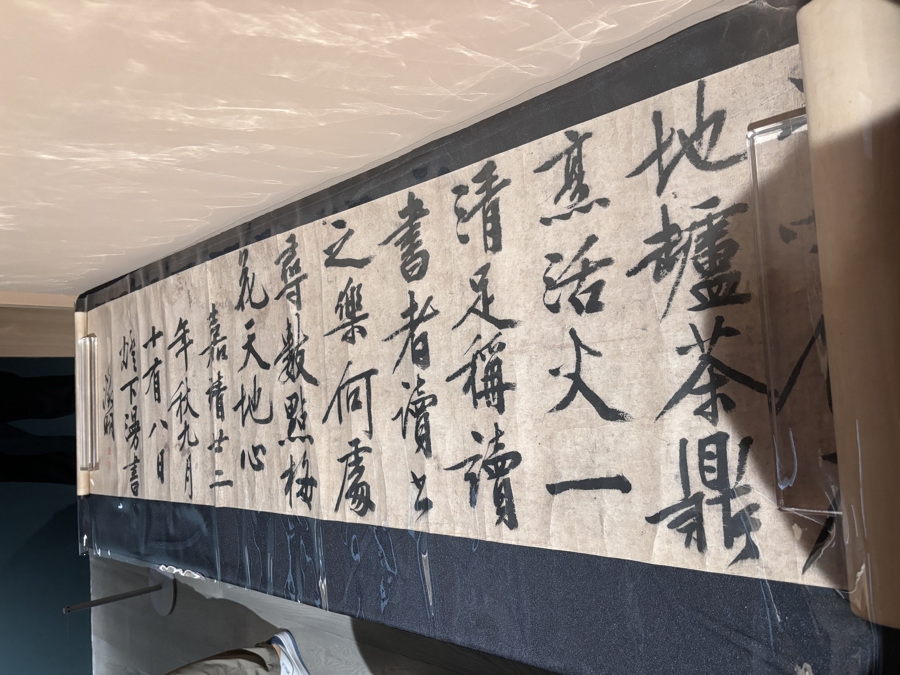 地爐茶鼎
烹活火一
清足稱讀
書者讀書
之樂何處
尋數點梅
花天地心
嘉靖廿二
年秋九月
十有八日
燈下漫書